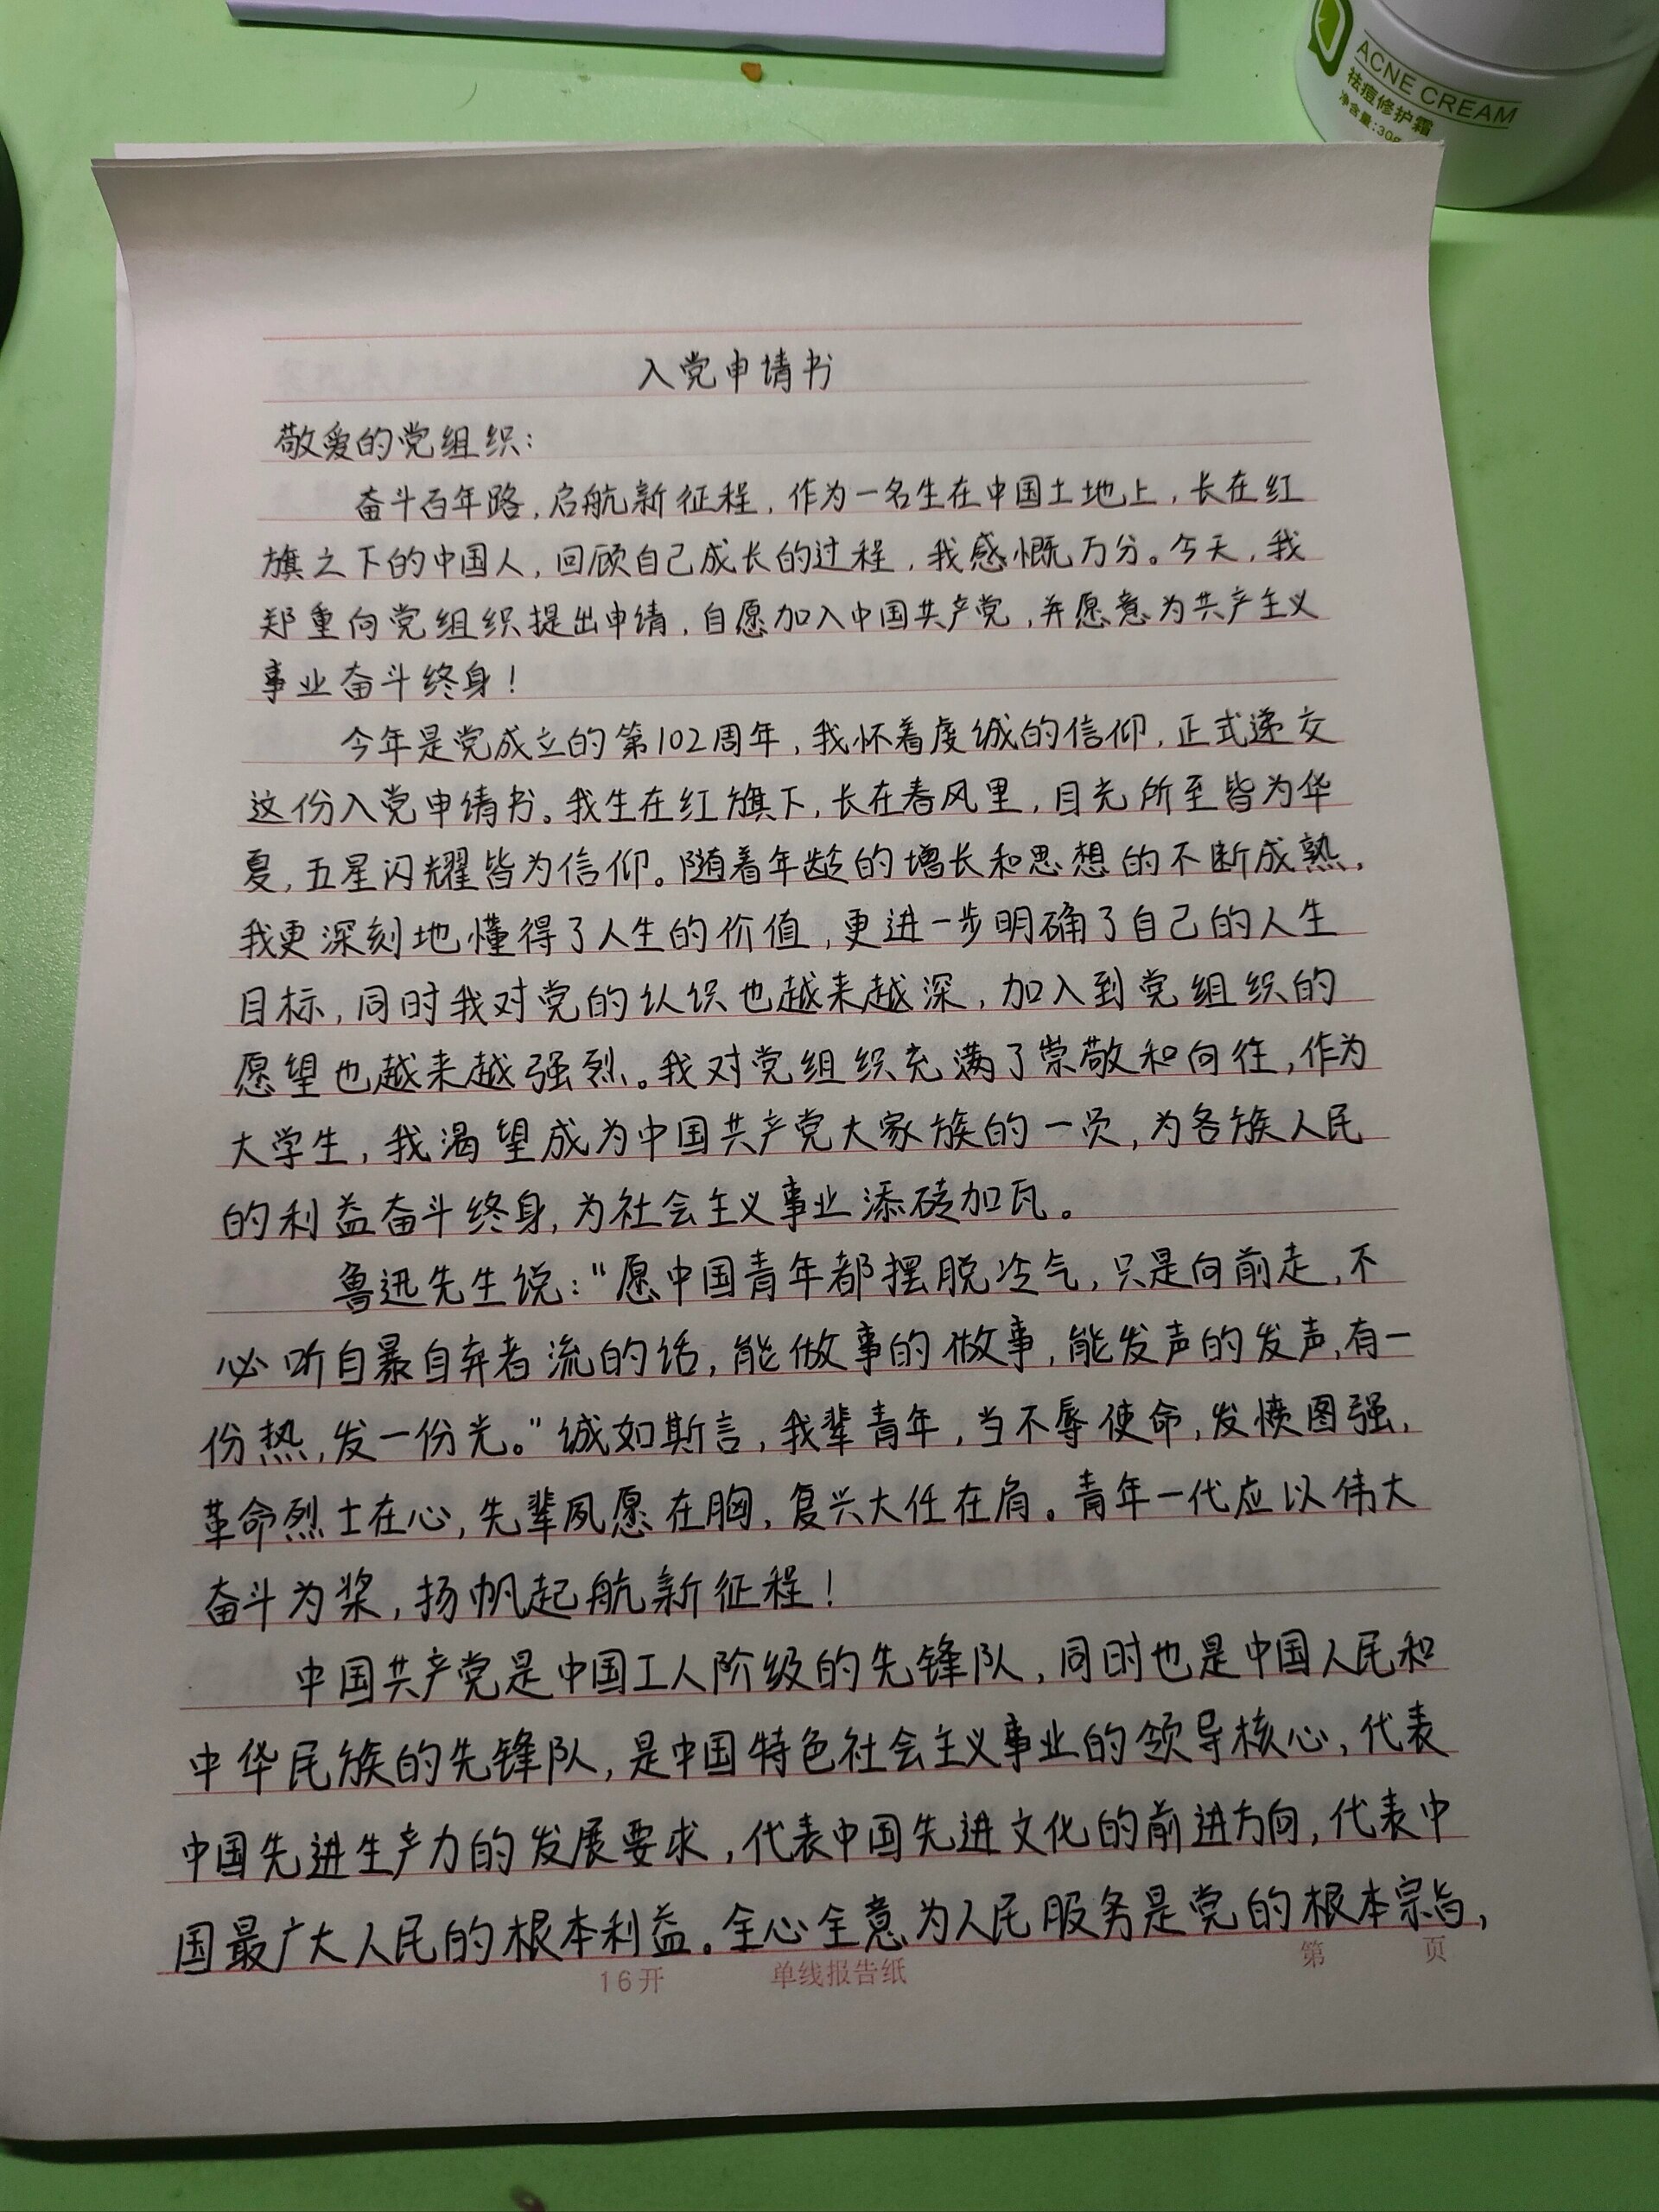 ACNE CREAM
祛痘修护霜
净含量:30g
入党申请书
敬爱的党组织:
奋斗百年路,启航新征程,作为一名生在中国土地上,长在红
旗之下的中国人,回顾自己成长的过程,我感慨万分。今天,我
郑重向党组织提出申请,自愿加入中国共产党,并愿意为共产主义
事业奋斗终身!
今年是党成立的第102周年,我怀着虔诚的信仰,正式递交
这份入党申请书。我生在红旗下,长在春风里,目光所至皆为华
夏,五星闪耀皆为信仰。随着年龄的增长和思想的不断成熟,
我更深刻地懂得了人生的价值,更进一步明确了自己的人生
目标,同时我对党的认识也越来越深,加入到党组织的
愿望也越来越强烈。我对党组织充满了崇敬和向往,作为
大学生,我渴望成为中国共产党大家族的一员,为各族人民
的利益奋斗终身,为社会主义事业添砖加瓦。
鲁迅先生说:"愿中国青年都摆脱冷气,只是向前走,不
必听自暴自弃者流的话,能做事的做事,能发声的发声,有一
份热,发一份光。"诚如斯言,我辈青年,当不辱使命,发愤图强,
革命烈士在心,先辈夙愿在胸,复兴大任在肩。青年一代应以伟大
奋斗为桨,扬帆起航新征程!
中国共产党是中国工人阶级的先锋队,同时也是中国人民和
中华民族的先锋队,是中国特色社会主义事业的领导核心,代表
中国先进生产力的发展要求,代表中国先进文化的前进方向,代表中
国最广大人民的根本利益。全心全意为人民服务是党的根本宗旨,
16开 单线报告纸 第 页